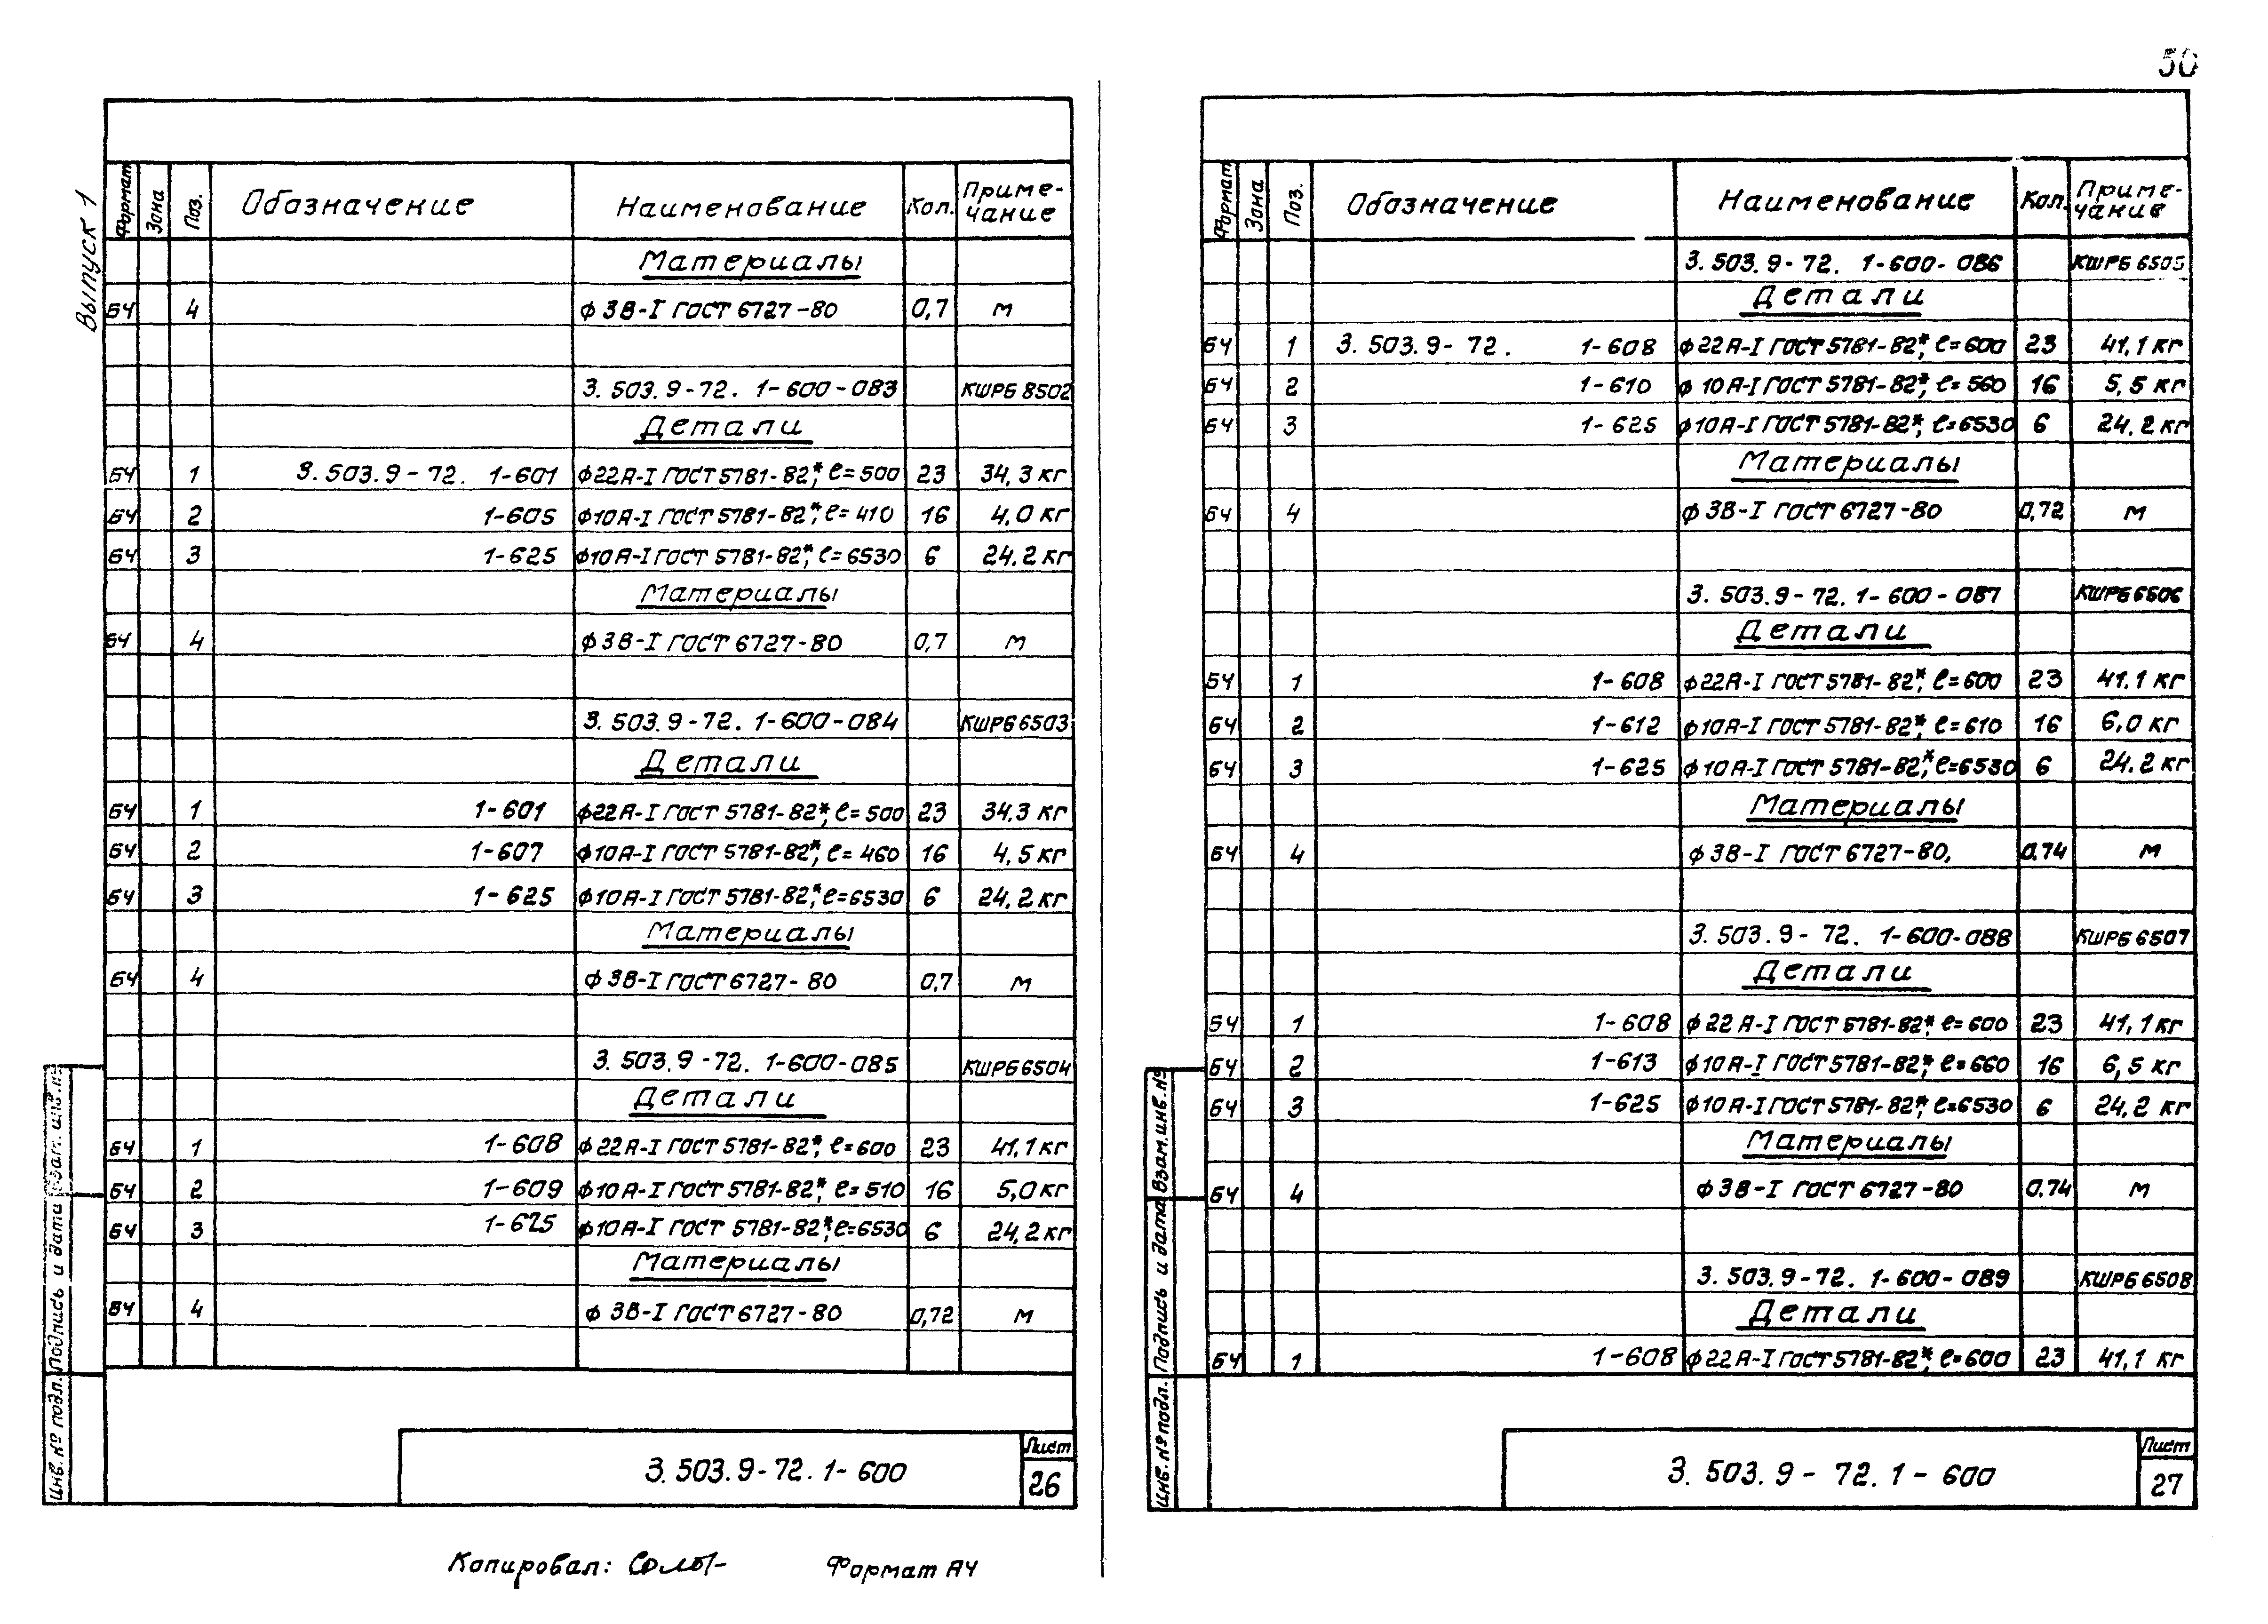 50
Выпуск 1
Формат Зона Поз. Обозначение Наименование Кол. Примечание
Материалы
БЧ 4 ф 3В-I ГОСТ 6727-80 0,7 м
3.503.9-72. 1-600-083 КШРБ 8502
Детали
БЧ 1 3.503.9-72. 1-601 ф22А-I ГОСТ 5781-82*, ℓ=500 23 34,3 кг
БЧ 2 1-605 ф10А-I ГОСТ 5781-82*, ℓ=410 16 4,0 кг
БЧ 3 1-625 ф10А-I ГОСТ 5781-82*, ℓ=6530 6 24.2 кг
Материалы
БЧ 4 ф 3В-I ГОСТ 6727-80 0,7 м
3.503.9-72. 1-600-084 КШРБ 6503
Детали
БЧ 1 1-601 ф22А-I ГОСТ 5781-82*, ℓ=500 23 34.3 кг
БЧ 2 1-607 ф10А-I ГОСТ 5781-82*, ℓ=460 16 4,5 кг
БЧ 3 1-625 ф10А-I ГОСТ 5781-82*, ℓ=6530 6 24,2 кг
Материалы
БЧ 4 ф 3В-I ГОСТ 6727-80 0,7 м
3.503.9-72. 1-600-085 КШРБ 6504
Детали
БЧ 1 1-608 ф22А-I ГОСТ 5781-82*, ℓ=600 23 41,1 кг
БЧ 2 1-609 ф10А-I ГОСТ 5781-82*, ℓ=510 16 5,0 кг
БЧ 3 1-625 ф10А-I ГОСТ 5781-82*, ℓ=6530 6 24,2 кг
Материалы
БЧ 4 ф 3В-I ГОСТ 6727-80 0,72 м
Инв. № подл. Подпись и дата Взам. инв. №
3.503.9-72.1-600
Лист
26
Копировал:
Формат А4
Формат Зона Поз. Обозначение Наименование Кол. Примечание
3.503.9-72. 1-600-086 КШРБ 6505
Детали
БЧ 1 3.503.9-72. 1-608 ф22А-I ГОСТ 5781-82*, ℓ=600 23 41,1 кг
БЧ 2 1-610 ф10А-I ГОСТ 5781-82*, ℓ=560 16 5,5 кг
БЧ 3 1-625 ф10А-I ГОСТ 5781-82*, ℓ=6530 6 24.2 кг
Материалы
БЧ 4 ф 3В-I ГОСТ 6727-80 0,72 м
3.503.9-72. 1-600-087 КШРБ 6506
Детали
БЧ 1 1-608 ф22А-I ГОСТ 5781-82*, ℓ=600 23 41.1 кг
БЧ 2 1-612 ф10А-I ГОСТ 5781-82*, ℓ=610 16 6,0 кг
БЧ 3 1-625 ф10А-I ГОСТ 5781-82*, ℓ=6530 6 24.2 кг
Материалы
БЧ 4 ф 3В-I ГОСТ 6727-80, 0.74 м
3.503.9-72. 1-600-088 КШРБ 6507
Детали
БЧ 1 1-608 ф22А-I ГОСТ 5781-82*, ℓ=600 23 41,1 кг
БЧ 2 1-613 ф10А-I ГОСТ 5781-82*, ℓ=660 16 6,5 кг
БЧ 3 1-625 ф10А-I ГОСТ 5781-82*, ℓ=6530 6 24,2 кг
Материалы
БЧ 4 ф 3В-I ГОСТ 6727-80 0.74 м
3.503.9-72. 1-600-089 КШРБ 6508
Детали
БЧ 1 1-608 ф22А-I ГОСТ 5781-82*, ℓ=600 23 41,1 кг
Инв. № подл. Подпись и дата Взам. инв. №
3.503.9-72.1-600
Лист
27